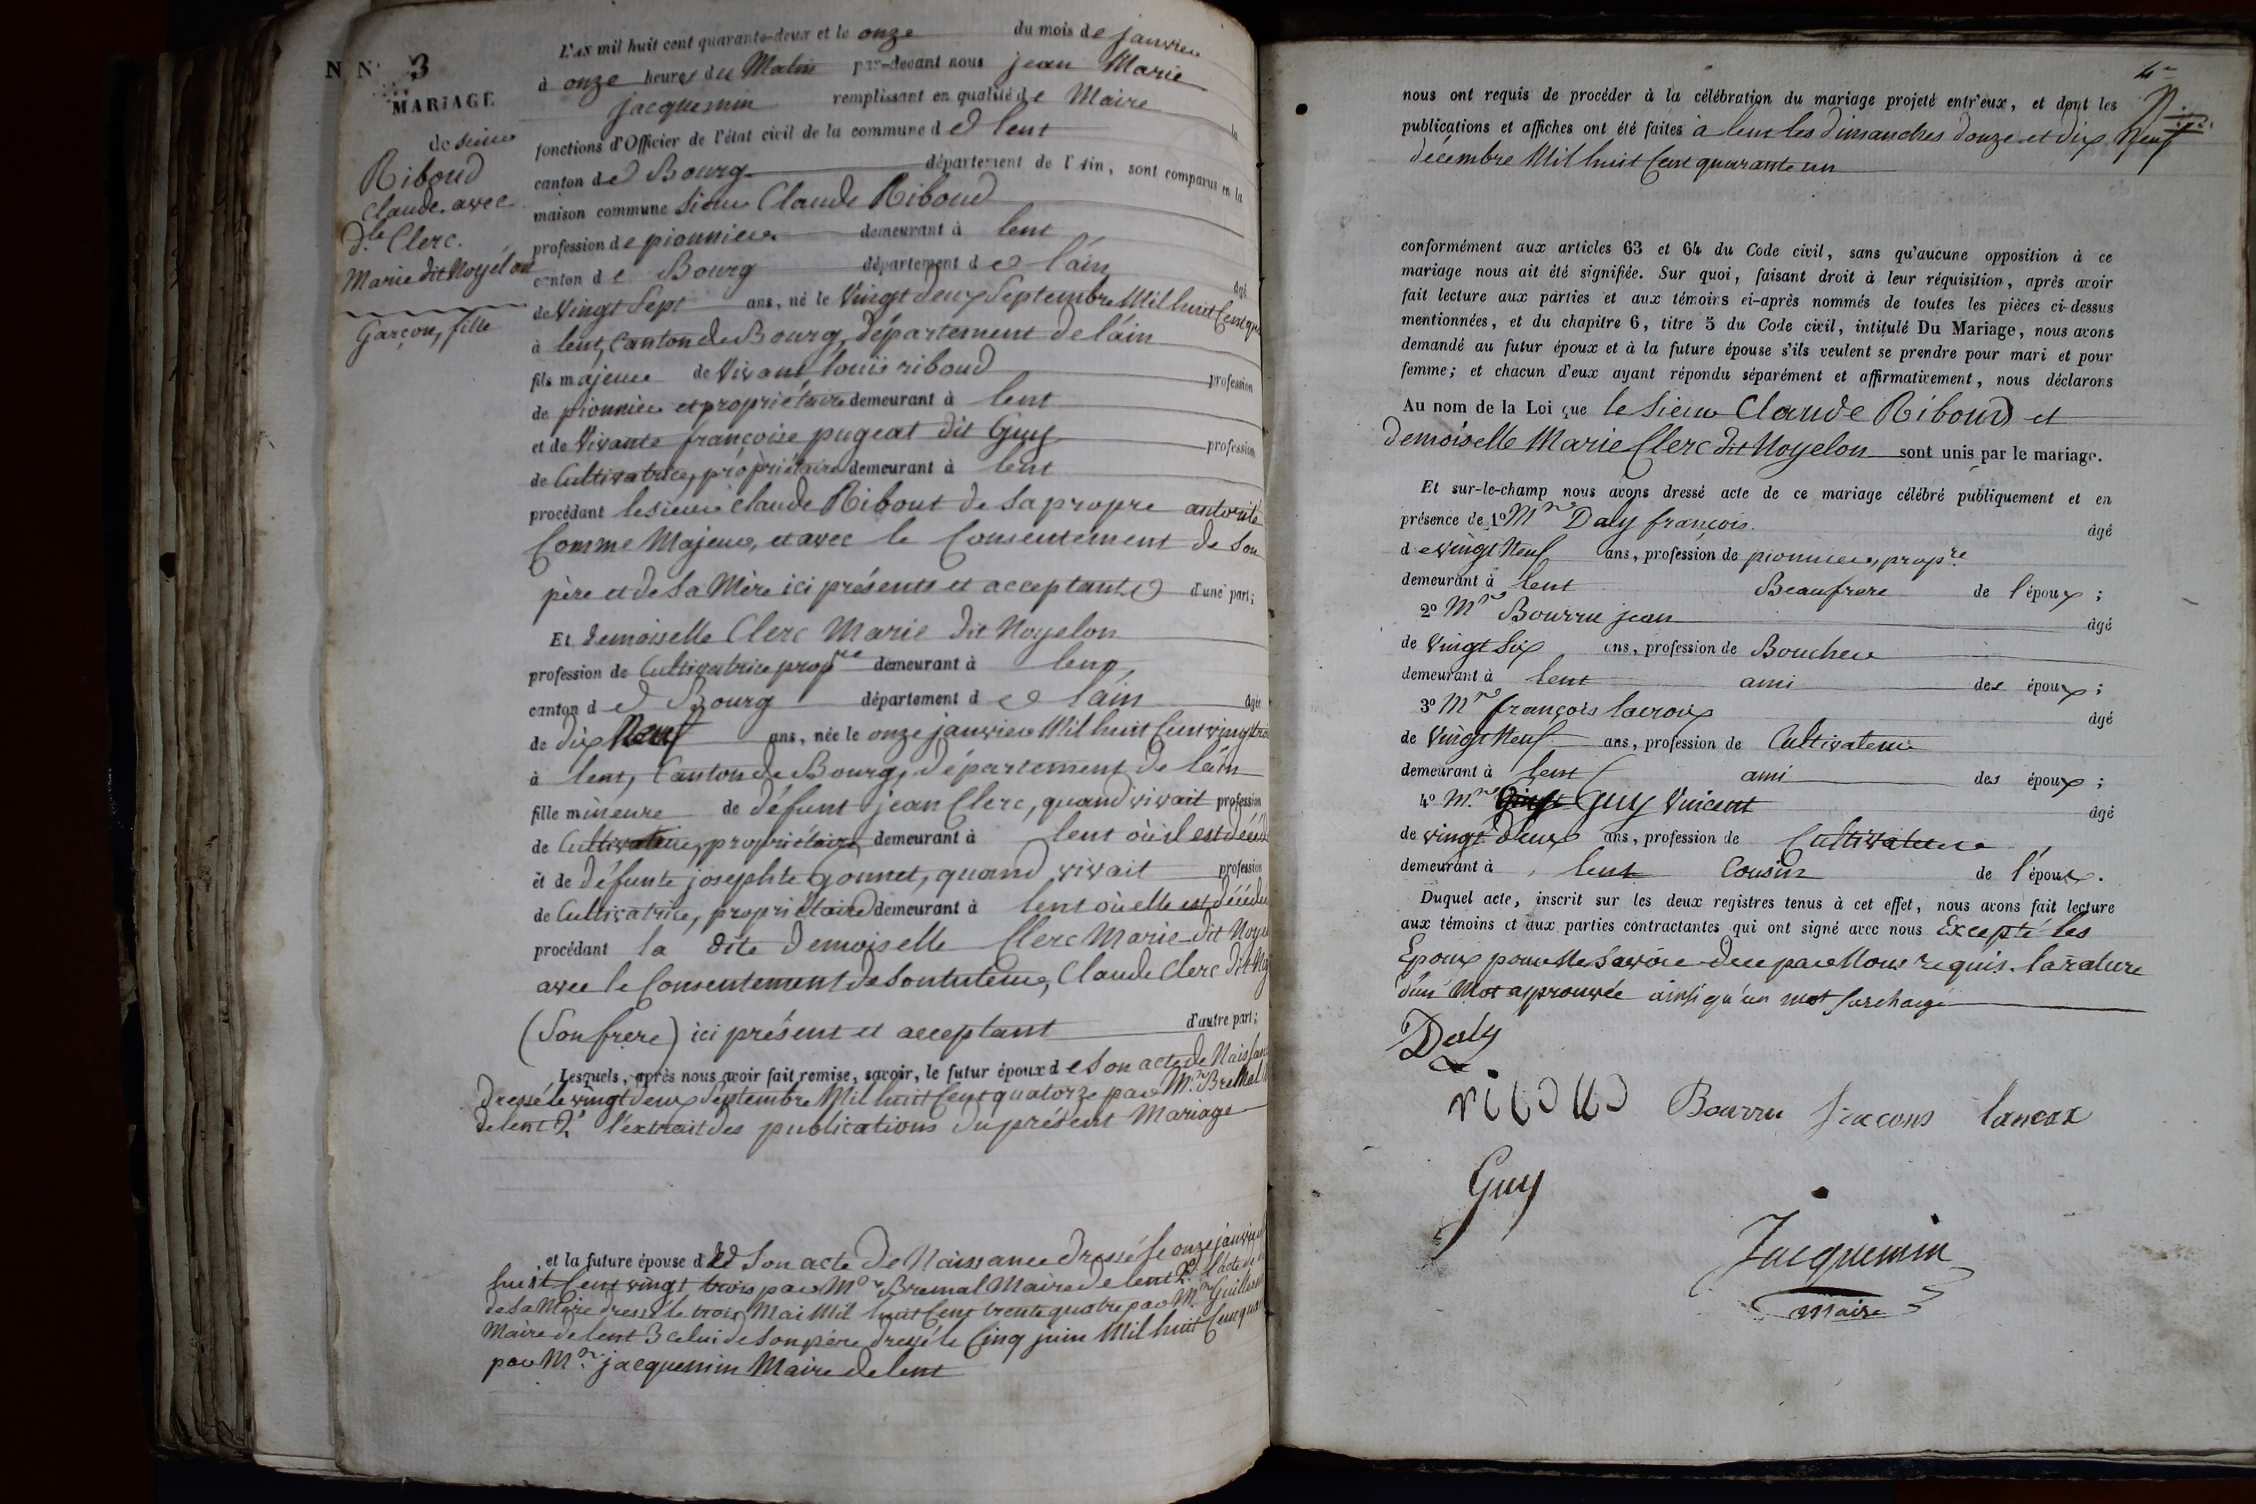 N N° 3
MARIAGE
de sieur
Riboud
Claude. avec
d.lle Clerc.
Marie dit Noyelon
Garçon, fille
L'AN mil huit cent quarante-deux et le onze du mois de janvier
à onze heures du Matin par-devant nous jean Marie
jacquemin remplissant en qualité de Maire la
fonctions d'Officier de l'état civil de la commune de lent
canton de Bourg département de l'Ain, sont comparus en la
maison commune sieur Claude Riboud
profession de pionnier demeurant à lent
canton de Bourg département de l'áin âgé
de Vingt Sept ans, né le Vingt deux Septembre Mil huit Cent
à lent, Canton de Bourg, département de l'áin
fils majeur de Vivant louis riboud profession
de pionnier et propriétaire demeurant à lent
et de Vivante françoise pugeat dit Guy profession
de Cultivatrice, propriétaire demeurant à lent
procédant le sieur Claude Ribout de Sa propre autorité
Comme Majeur, et avec le Consentement de Son
père et de Sa Mère ici présents et acceptant d'une part;
Et demoiselle Clerc Marie dit Noyelon
profession de Cultivatrice prop.re demeurant à lent,
canton de Bourg département de l'áin âgée
de dix Neuf ans, née le onze janvier Mil huit Cent vingt
à lent, Canton de Bourg, département de l'áin
fille mineure de défunt jean Clerc, quand vivait profession
de Cultivateur, propriétaire demeurant à lent où il est
et de défunte josephte Gonnet, quand vivait profession
de Cultivatrice, propriétaire demeurant à lent où elle est
procédant la dite demoiselle Clerc Marie dit
avec le Consentement de Son tuteur, Claude Clerc dit
(Son frere) ici présent et acceptant d'autre part;
Lesquels, après nous avoir fait remise, savoir, le futur époux de Son acte de
dressé le vingt deux Septembre Mil huit Cent quatorze par M.r
de lent 2° l'extrait des publications du présent Mariage
et la future épouse de Son acte de Naissance dressé le onze janvier
huit Cent vingt trois par M.r Bremal Maire de lent 2° l'acte de
de Sa Mère dressé le trois Mai Mil huit Cent trente quatre par M.r
Maire de lent 3 celui de Son père dressé le Cinq juin Mil huit Cent
par M.r jacquemin Maire de lent
nous ont requis de procéder à la célébration du mariage projeté entr'eux, et dont les
publications et affiches ont été faites à lent les dimanches douze et dix Neuf
décembre Mil huit Cent quarante un
conformément aux articles 63 et 64 du Code civil, sans qu'aucune opposition à ce
mariage nous ait été signifiée. Sur quoi, faisant droit à leur réquisition, après avoir
fait lecture aux parties et aux témoins ci-après nommés de toutes les pièces ci-dessus
mentionnées, et du chapitre 6, titre 5 du Code civil, intitulé Du Mariage, nous avons
demandé au futur époux et à la future épouse s'ils veulent se prendre pour mari et pour
femme; et chacun d'eux ayant répondu séparément et affirmativement, nous déclarons
Au nom de la Loi que le Sieur Claude Riboud et
demoiselle Marie Clerc dit Noyelon sont unis par le mariage.
Et sur-le-champ nous avons dressé acte de ce mariage célébré publiquement et en
présence de 1° M.r Daly françois. âgé
de vingt Neuf ans, profession de pionnier, prop.re
demeurant à lent Beaufrere de l'époux;
2° M.r Bourru jean âgé
de Vingt Six ans, profession de Boucher
demeurant à lent ami des époux;
3° M.r françois lacroix âgé
de Vingt Neuf ans, profession de Cultivateur
demeurant à lent ami des époux;
4° M.r Guy Vincent âgé
de vingt deux ans, profession de Cultivateur
demeurant à lent Cousin de l'époux.
Duquel acte, inscrit sur les deux registres tenus à cet effet, nous avons fait lecture
aux témoins et aux parties contractantes qui ont signé avec nous Excepté les
Epoux pour Ne Savoir de ce par Nous requis. la rature
d'un Mot approuvée ainsi qu'un mot surchargé
Daly
Bourru
Guy
Jacquemin
Maire